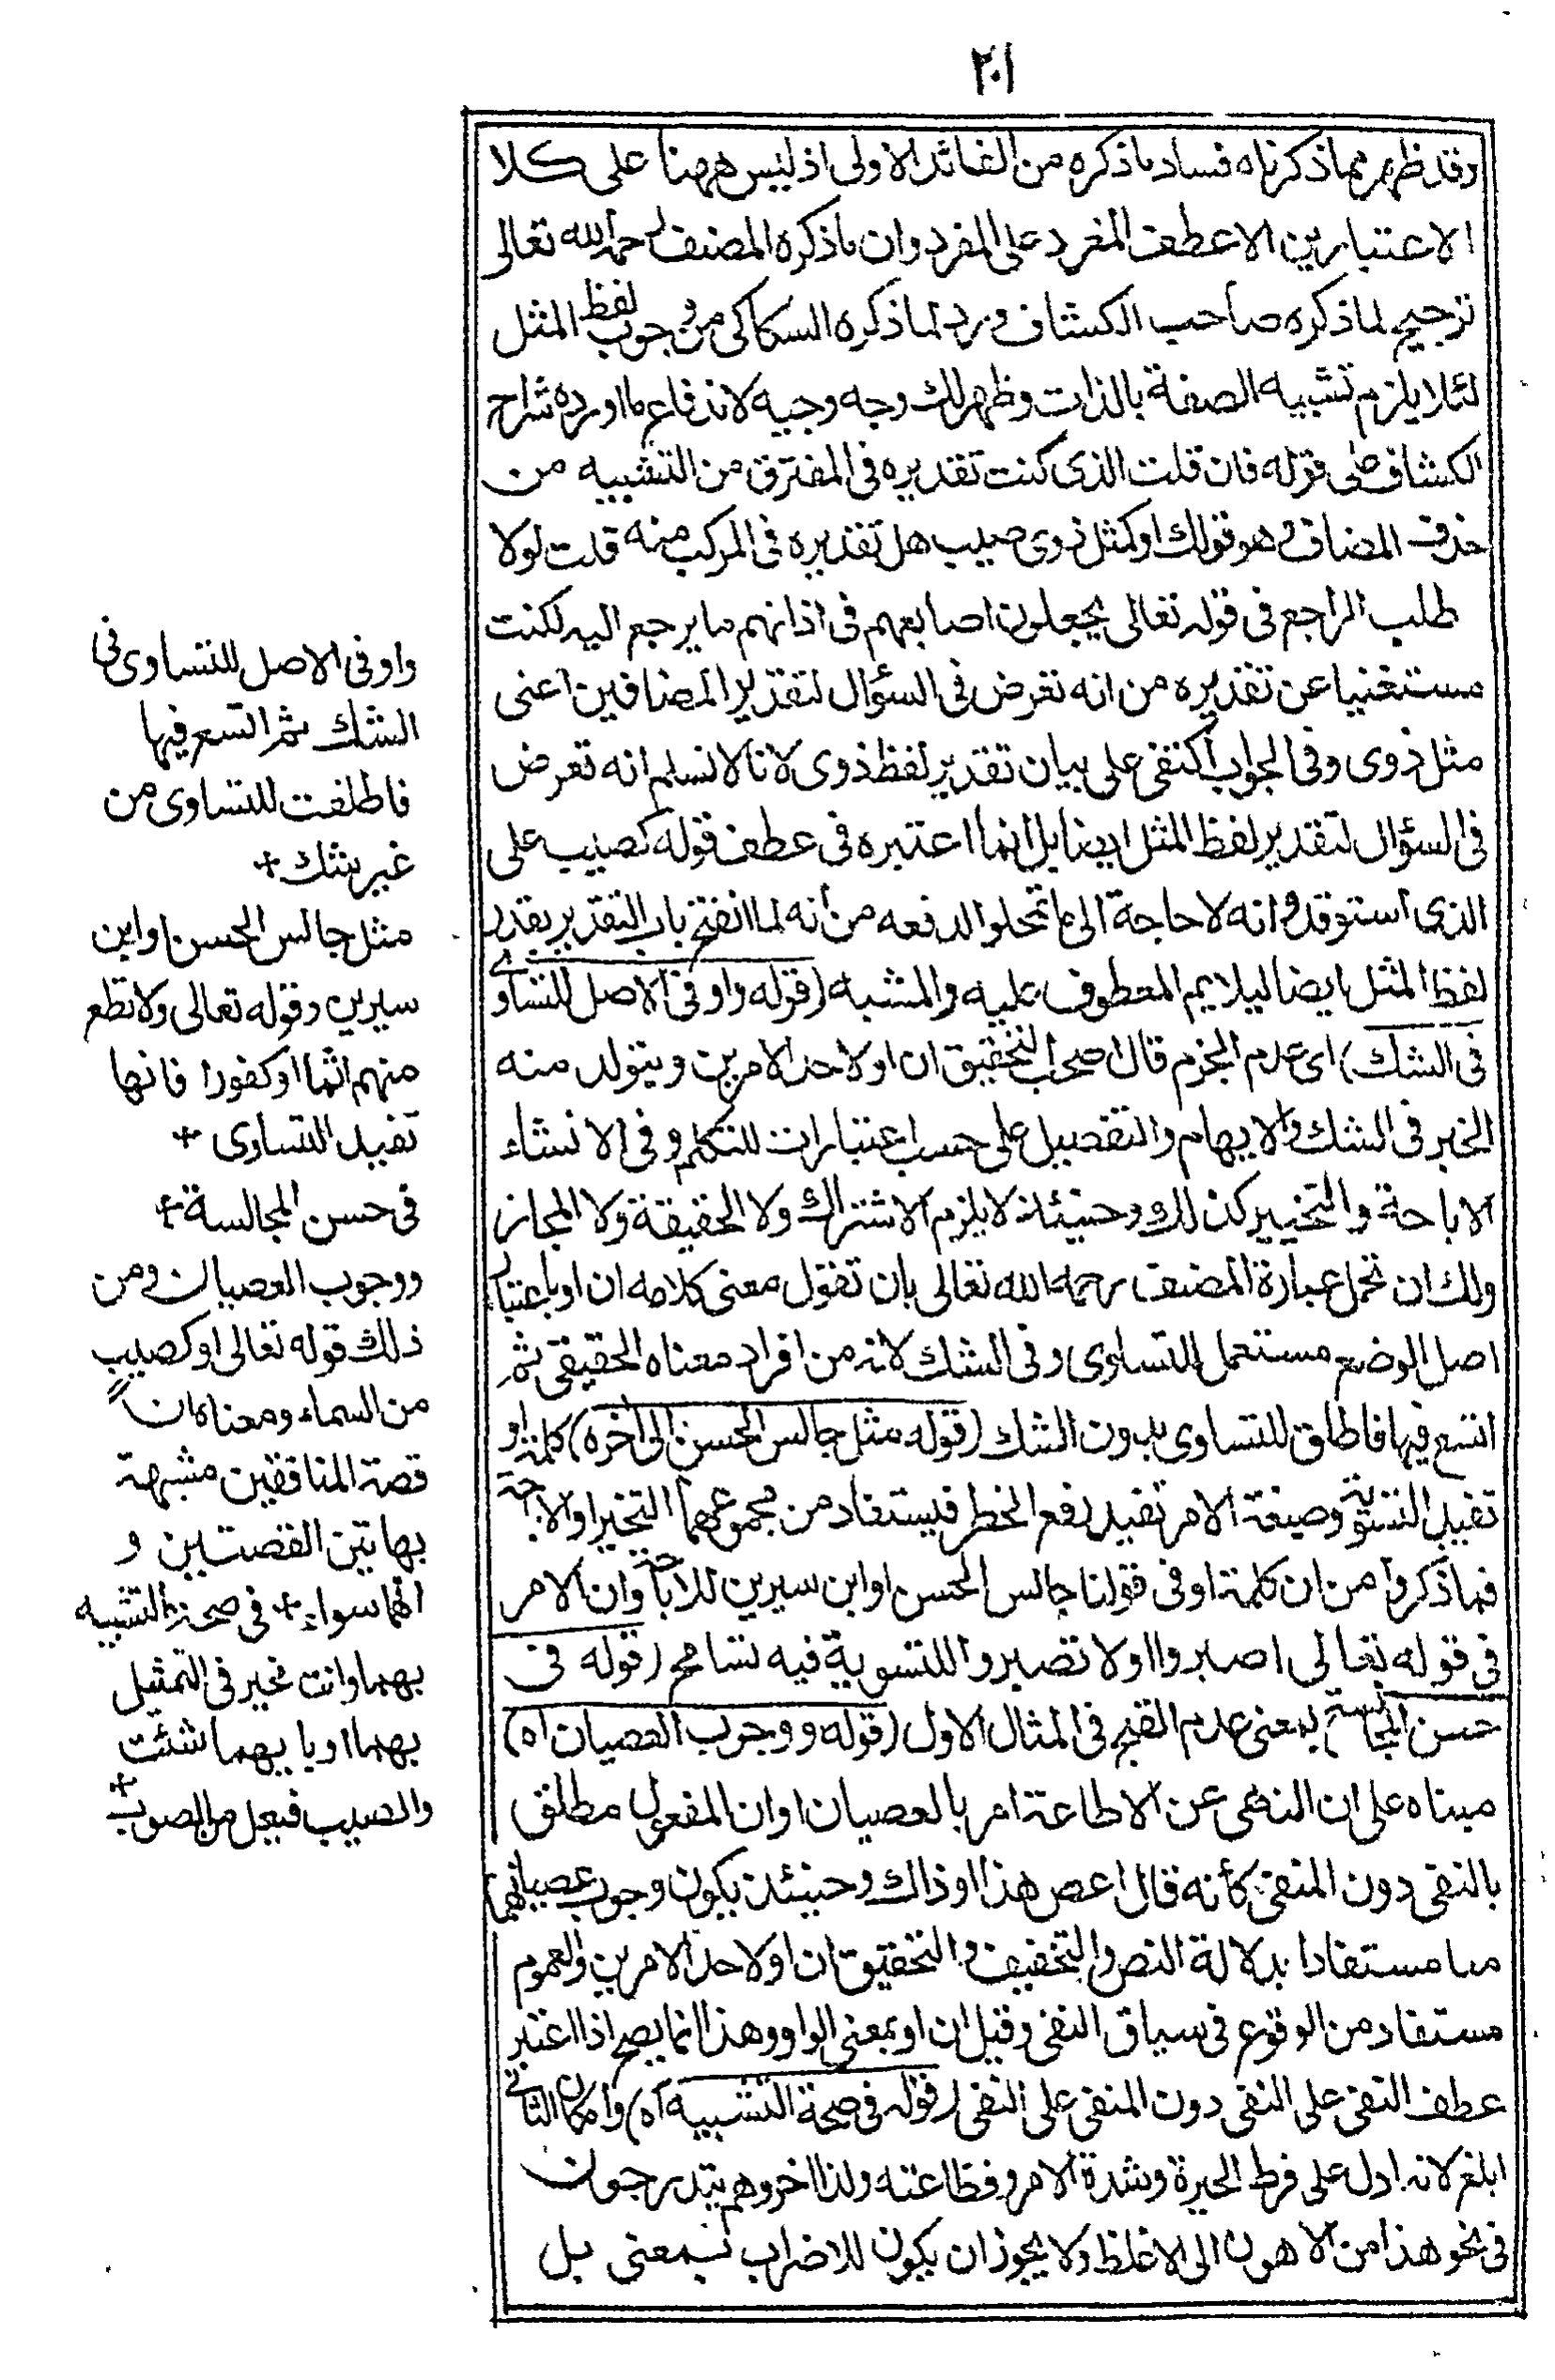 ٢٠١
وقد ظهر مما ذكرناه فساد ما ذكره من الفائد الاولى اذ ليس ههنا على كلا
الاعتبارين الا عطف المفرد على المفرد وان ما ذكره المصنف رحمه الله تعالى
ترجيح لما ذكره صاحب الكشاف ورد لما ذكره السكاكى من وجوب لفظ المثل
لئلا يلزم تشبيه الصفة بالذات وظهر لك وجه وجيه لاندفاع ما اورده شراح
الكشاف على قوله فان قلت الذى كنت تقديره فى المفترق من التشبيه من
حذف المضاف وهو قولك او كمثل ذوى صيب هل تقديره فى المركب منه قلت لولا
طلب الراجع فى قوله تعالى يجعلون اصابعهم فى اذانهم ما يرجع اليه لكنت
مستغنيا عن تقديره من انه تعرض فى السؤال لتقدير المضافين اعنى
مثل ذوى وفى الجواب اكتفى على بيان تقدير لفظ ذوى لانا لا نسلم انه تعرض
فى السؤال لتقدير لفظ المثل ايضا بل انما اعتبره فى عطف قوله كصيب على
الذى استوقد وانه لا حاجة الى ما تمحلوا لدفعه من أنه لما انفتح باب التقدير يقدر
لفظ المثل ايضا ليلايم المعطوف عليه والمشبه (قوله واو فى الاصل للتساوى
فى الشك) اى عدم الجزم قال صاحب التحقيق ان او لاحد الامرين ويتولد منه
الخبر فى الشك والايهام والتفصيل على حسب اعتبارات المتكلم وفى الانشاء
الاباحة والتخيير كذلك وحينئذ لا يلزم الاشتراك ولا الحقيقة ولا المجاز
ولك ان تحمل عبارة المصنف رحمه الله تعالى بان تقول معنى كلامه ان او باعتبار
اصل الوضع مستعمل للتساوى وفى الشك لانه من افراد معناه الحقيقى ثم
اتسع فيها فاطلق للتساوى بدون الشك (قوله مثل جالس الحسن الى اخره) كلمة او
تفيد التسوية وصيغة الامر تفيد رفع الخطر فيستفاد من مجموعهما التخيير او الاباحة
فما ذكروا من ان كلمة او فى قولنا جالس الحسن او ابن سيرين للاباحة وان الامر
فى قوله تعالى اصبروا اولا تصبروا للتسوية فيه تسامح (قوله فى
حسن المجالسة) بمعنى عدم القبح فى المثال الاول (قوله ووجوب العصيان اه)
مبناه على ان النهى عن الاطاعة امر بالعصيان او ان المفعول مطلق
بالنفى دون المنفى كأنه قال اعص هذا او ذاك وحينئذ يكون وجوب عصيانهما
مستفادا بدلالة النص والتحقيق ان او لاحد الامرين والعموم
مستفاد من الوقوع فى سياق النفى وقيل ان او بمعنى الواو وهذا انما يصح اذا اعتبر
عطف النفى على النفى دون المنفى على النفى (قوله فى صحة التشبيه اه) وامكان الثانى
ابلغ لانه ادل على فرط الحيرة وشدة الامر وفظاعته ولذا اخر وهم يتدرجون
فى نحو هذا من الاهون الى الاغلظ ولا يجوز ان يكون للاضراب بمعنى بل
واو فى الاصل للتساوى فى
الشك ثم اتسع فيها
فاطلقت للتساوى من
غير شك +
مثل جالس الحسن او ابن
سيرين وقوله تعالى ولا تطع
منهم اثما او كفورا فانها
تفيد التساوى +
فى حسن المجالسة +
ووجوب العصيان ومن
ذلك قوله تعالى او كصيب
من السماء ومعناه ان
قصة المنافقين مشبهة
بهاتين القصتين و
انهما سواء + فى صحة التشبيه
بهما وانت مخير فى التمثيل
بهما او بايهما شئت
والصيب فيعل من الصوب +